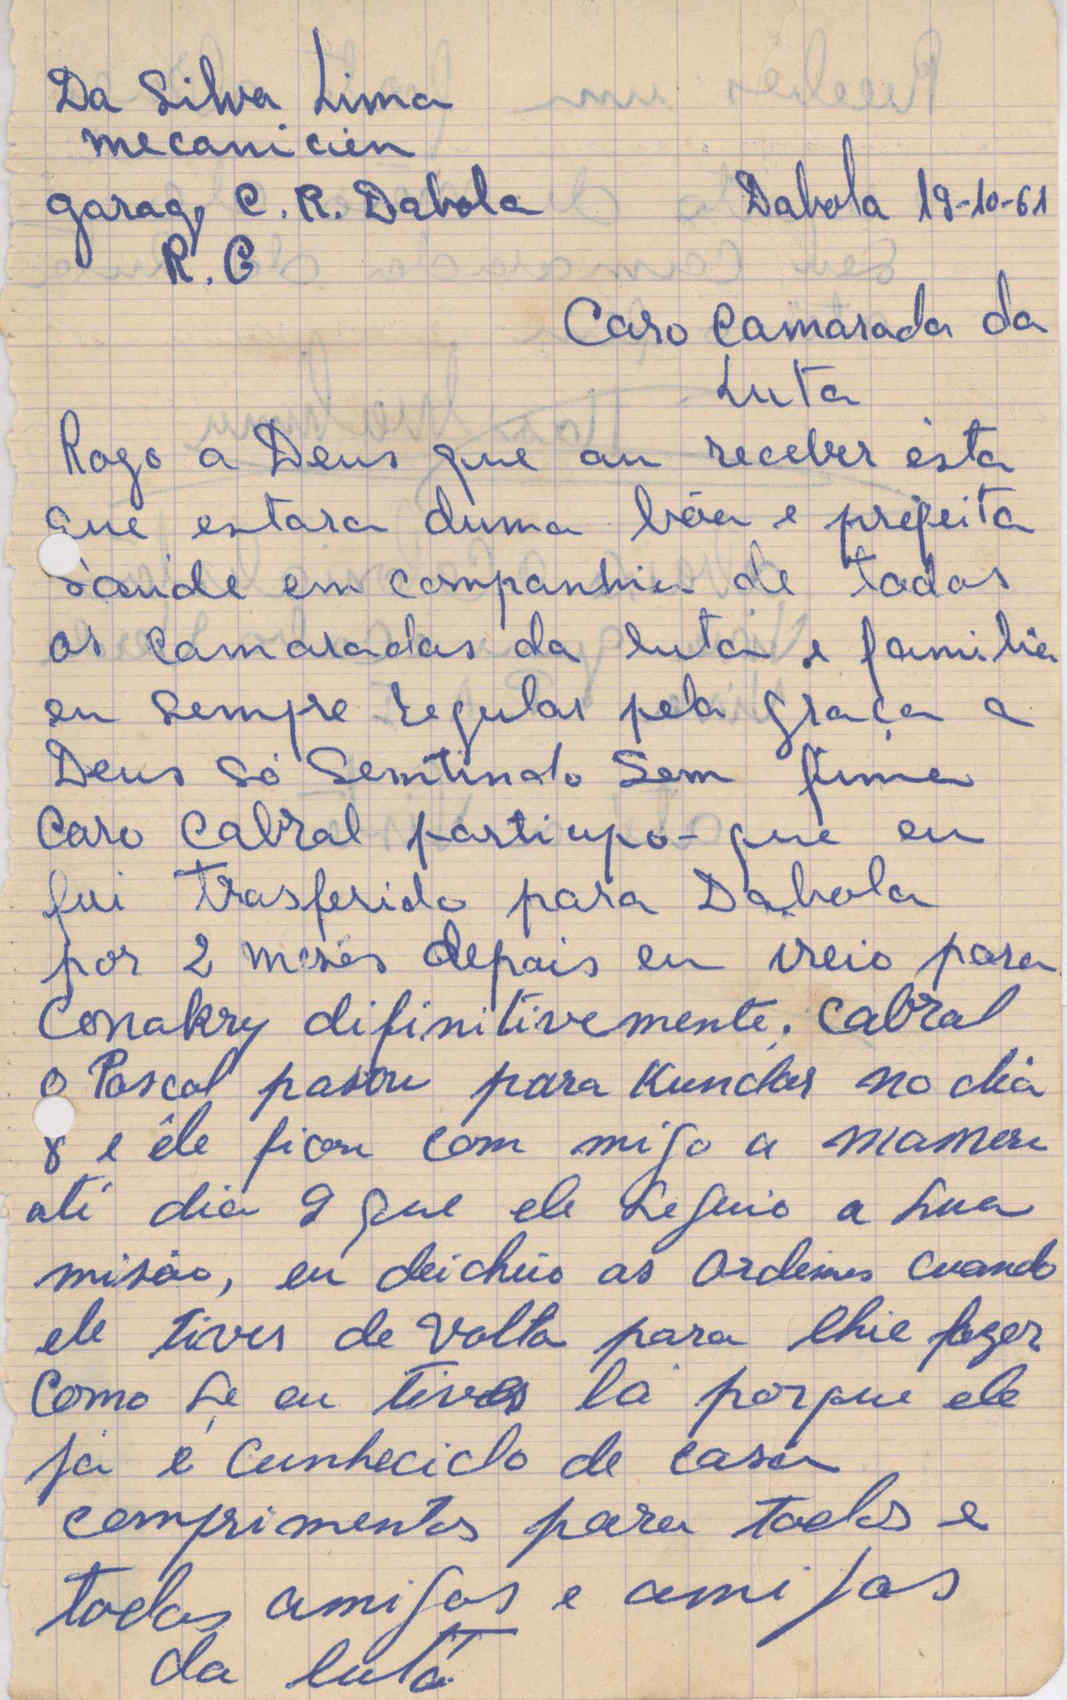 Da Silva Lima
mecanicien
garage C. R. Dabola
R. G
Dabola 19-10-61
Caro Camarada da
Luta
Rogo a Deus que au receber ésta
que estara duma bóa e prefeita
Saúde em companhia de todas
os camaradas da luta e familia
eu sempre regular pela graça a
Deus Só Semtindo Sem fume
Caro Cabral participo-que eu
fui trasferido para Dabola
por 2 meses depais eu ireio para
Conakry difinitivemente. Cabral
o Pascal pasou para Kundar no dia
8 e éle ficou com migo a mamou
até dia 9 que ele seguio a sua
misão, eu deicheio as ordemes cuando
ele tiver de volta para lhie fazer
como se eu tiver lá porque ele
já é cunhecido de casa
comprimentos para todos e
todas amigos e amigas
da luta